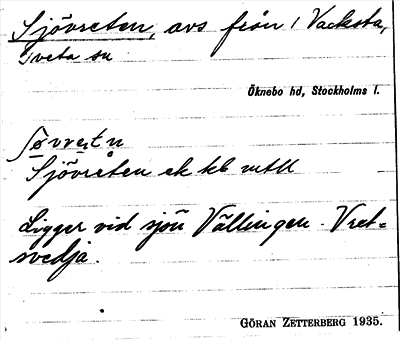 Sjövreten, avs från 1 Vacksta,
Tveta sn
Öknebo hd, Stockholms l.
Sjövreten ek kb mtll
Ligger vid sjön Vällingen. Vret=
svedja.
GÖRAN ZETTERBERG 1935.